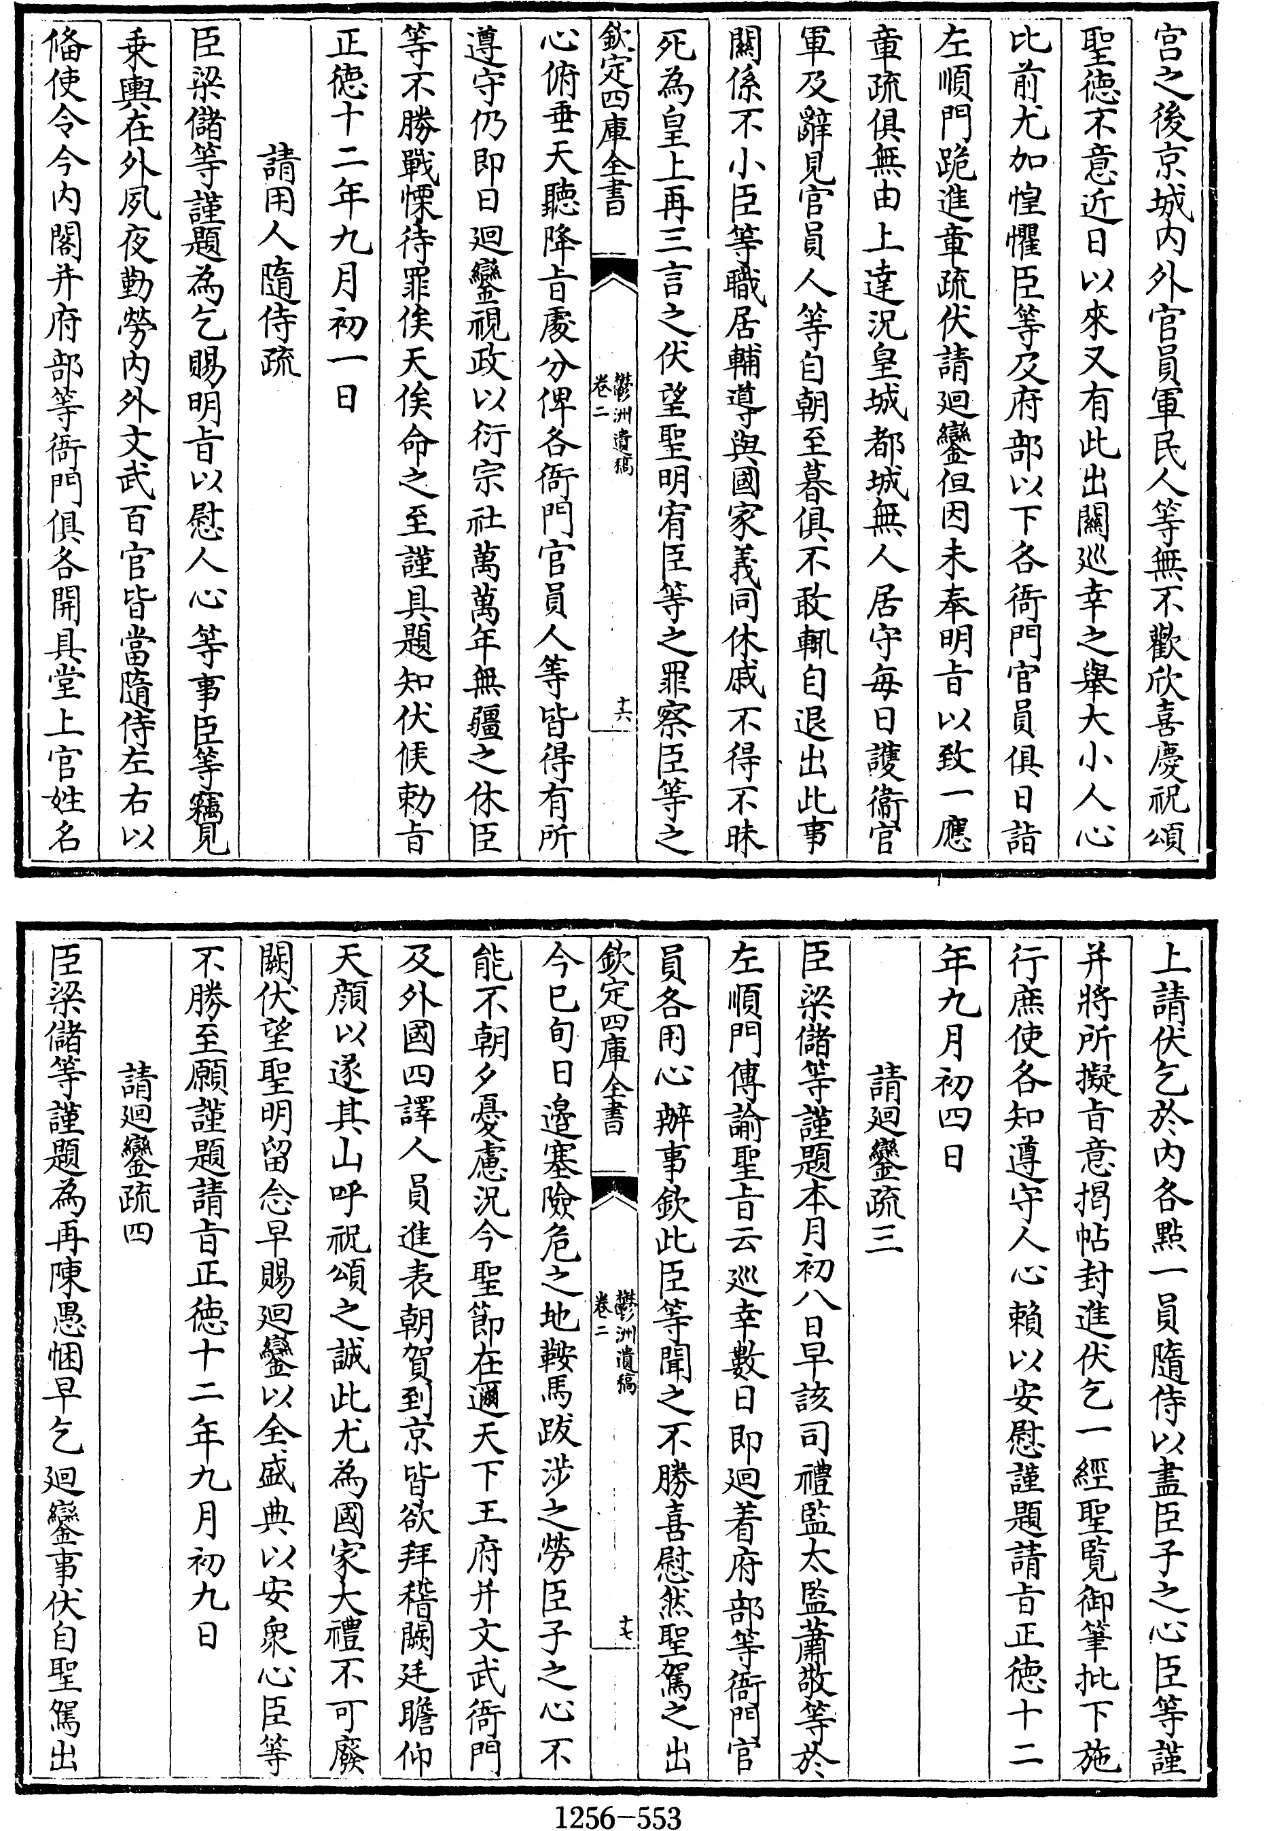 宮之後京城内外官員軍民人等無不歡欣喜慶祝頌
聖德不意近日以來又有此出關巡幸之舉大小人心
比前尤加惶懼臣等及府部以下各衙門官員俱日詣
左順門跪進章疏伏請廻鑾但因未奉明旨以致一應
章疏俱無由上達況皇城都城無人居守每日護衞官
軍及辭見官員人等自朝至暮俱不敢輒自退出此事
關係不小臣等職居輔導與國家義同休戚不得不昧
死為皇上再三言之伏望聖明宥臣等之罪察臣等之
欽定四庫全書
鬱洲遺稿
卷二
十六
心俯垂天聽降旨處分俾各衙門官員人等皆得有所
遵守仍即日廻鑾視政以衍宗社萬萬年無疆之休臣
等不勝戰慄待罪俟天俟命之至謹具題知伏候勅旨
正德十二年九月初一日
請用人隨侍疏
臣梁儲等謹題為乞賜明旨以慰人心等事臣等竊見
乘輿在外夙夜勤勞内外文武百官皆當隨侍左右以
俻使令今内閣并府部等衙門俱各開具堂上官姓名
上請伏乞於内各點一員隨侍以盡臣子之心臣等謹
并將所擬旨意揭帖封進伏乞一經聖覧御筆批下施
行庶使各知遵守人心賴以安慰謹題請旨正德十二
年九月初四日
請廻鑾疏三
臣梁儲等謹題本月初八日早該司禮監太監蕭敬等於
左順門傳諭聖旨云巡幸數日即廻着府部等衙門官
員各用心辦事欽此臣等聞之不勝喜慰然聖駕之出
欽定四庫全書
鬱洲遺稿
卷二
十七
今已旬日邉塞險危之地鞍馬跋涉之勞臣子之心不
能不朝夕憂慮況今聖節在邇天下王府并文武衙門
及外國四譯人員進表朝賀到京皆欲拜稽闕廷瞻仰
天顔以遂其山呼祝頌之誠此尤為國家大禮不可廢
闕伏望聖明留念早賜廻鑾以全盛典以安衆心臣等
不勝至願謹題請旨正德十二年九月初九日
請廻鑾疏四
臣梁儲等謹題為再陳愚悃早乞廻鑾事伏自聖駕出
1256-553